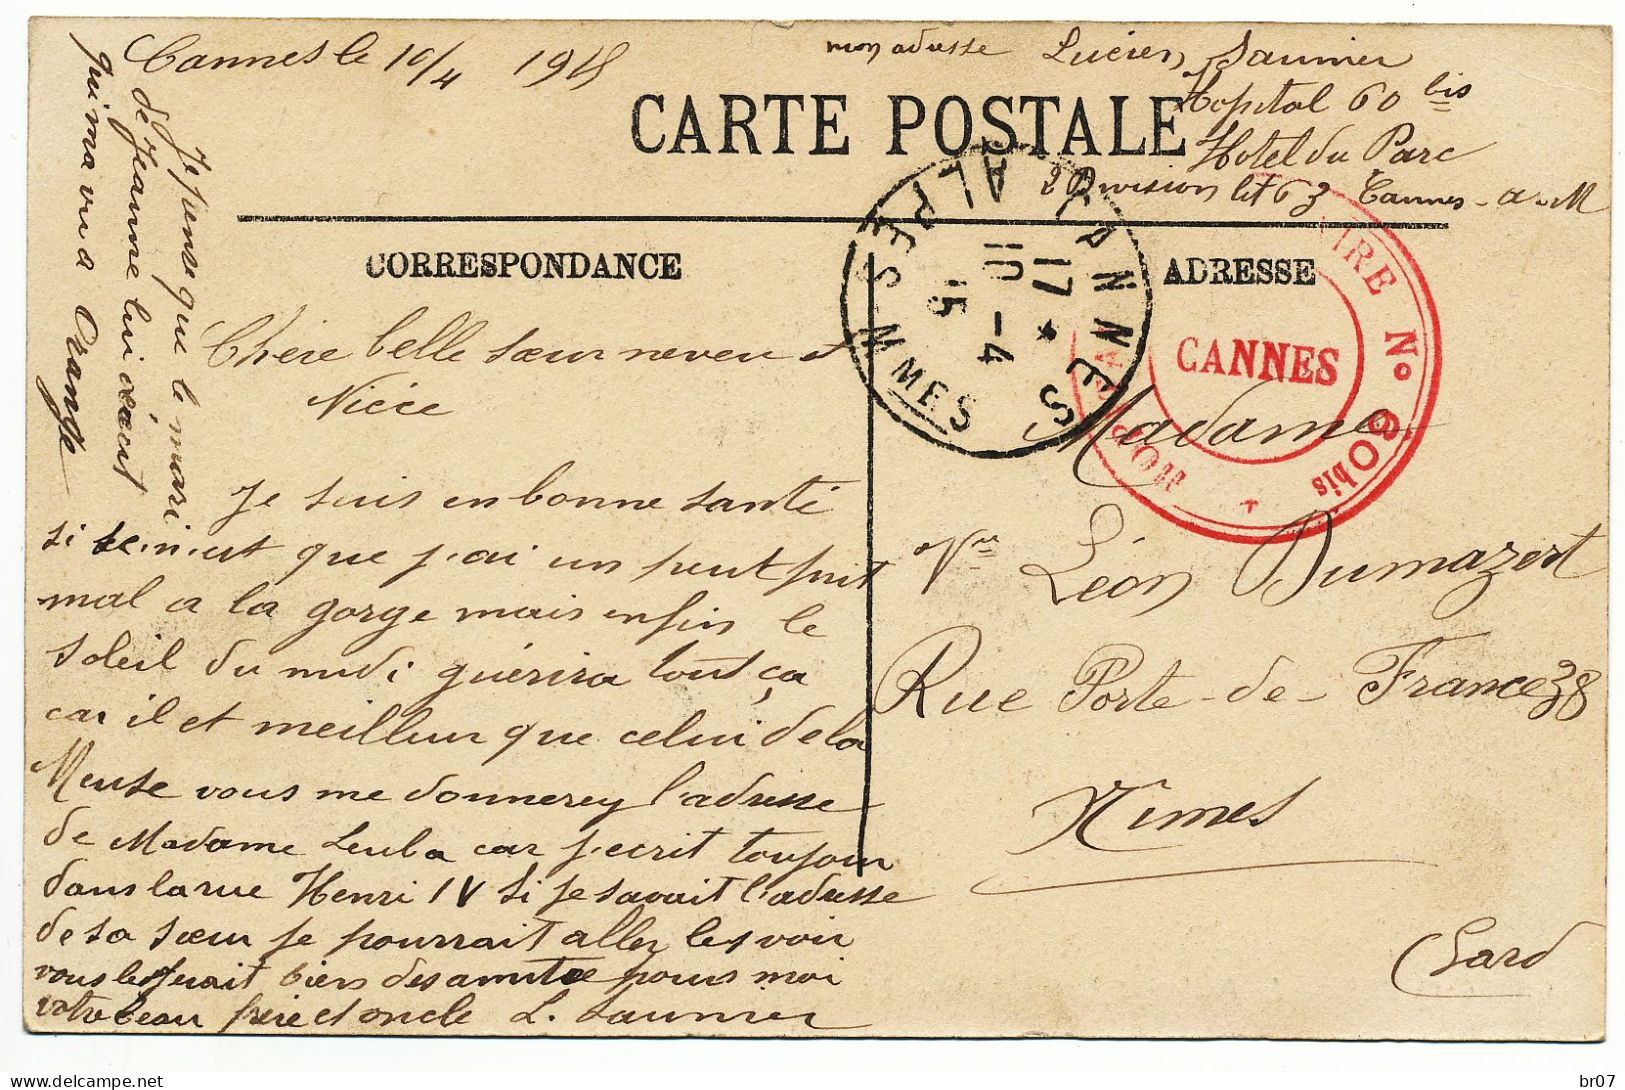 Cannes le 10/4 1915
mon adresse Lucien Saunier
Hopital 60 bis
Hotel du Parc
2 Division lit 63 Cannes - a - M
CARTE POSTALE
CORRESPONDANCE
ADRESSE
CANNES
17 *
10 - 4
15
ALPES MMES
HOPITAL AIRE N° 60 bis
CANNES
Chère belle sœur neveu et
Nièce
Je suis en bonne santé
si se n'est que j'ai un peut
mal a la gorge mais enfin le
soleil du midi guérira tout ça
car il et meilleur que celui de la
Meuse vous me donnerez l'adresse
de Madame Leuba car j'ecrit toujour
dans la rue Henri IV Si je savait l'adresse
de sa sœur je pourrait aller les voir
vous les ferait bien des amitoe pour moi
votre beau frère et oncle L. Saunier
Je pense que le mari
de Jeanne lui écrit
qui m'a vu a Orange
Madame
Vve Léon Dumazert
Rue Porte-de-France 38
Nimes
Gard
br07